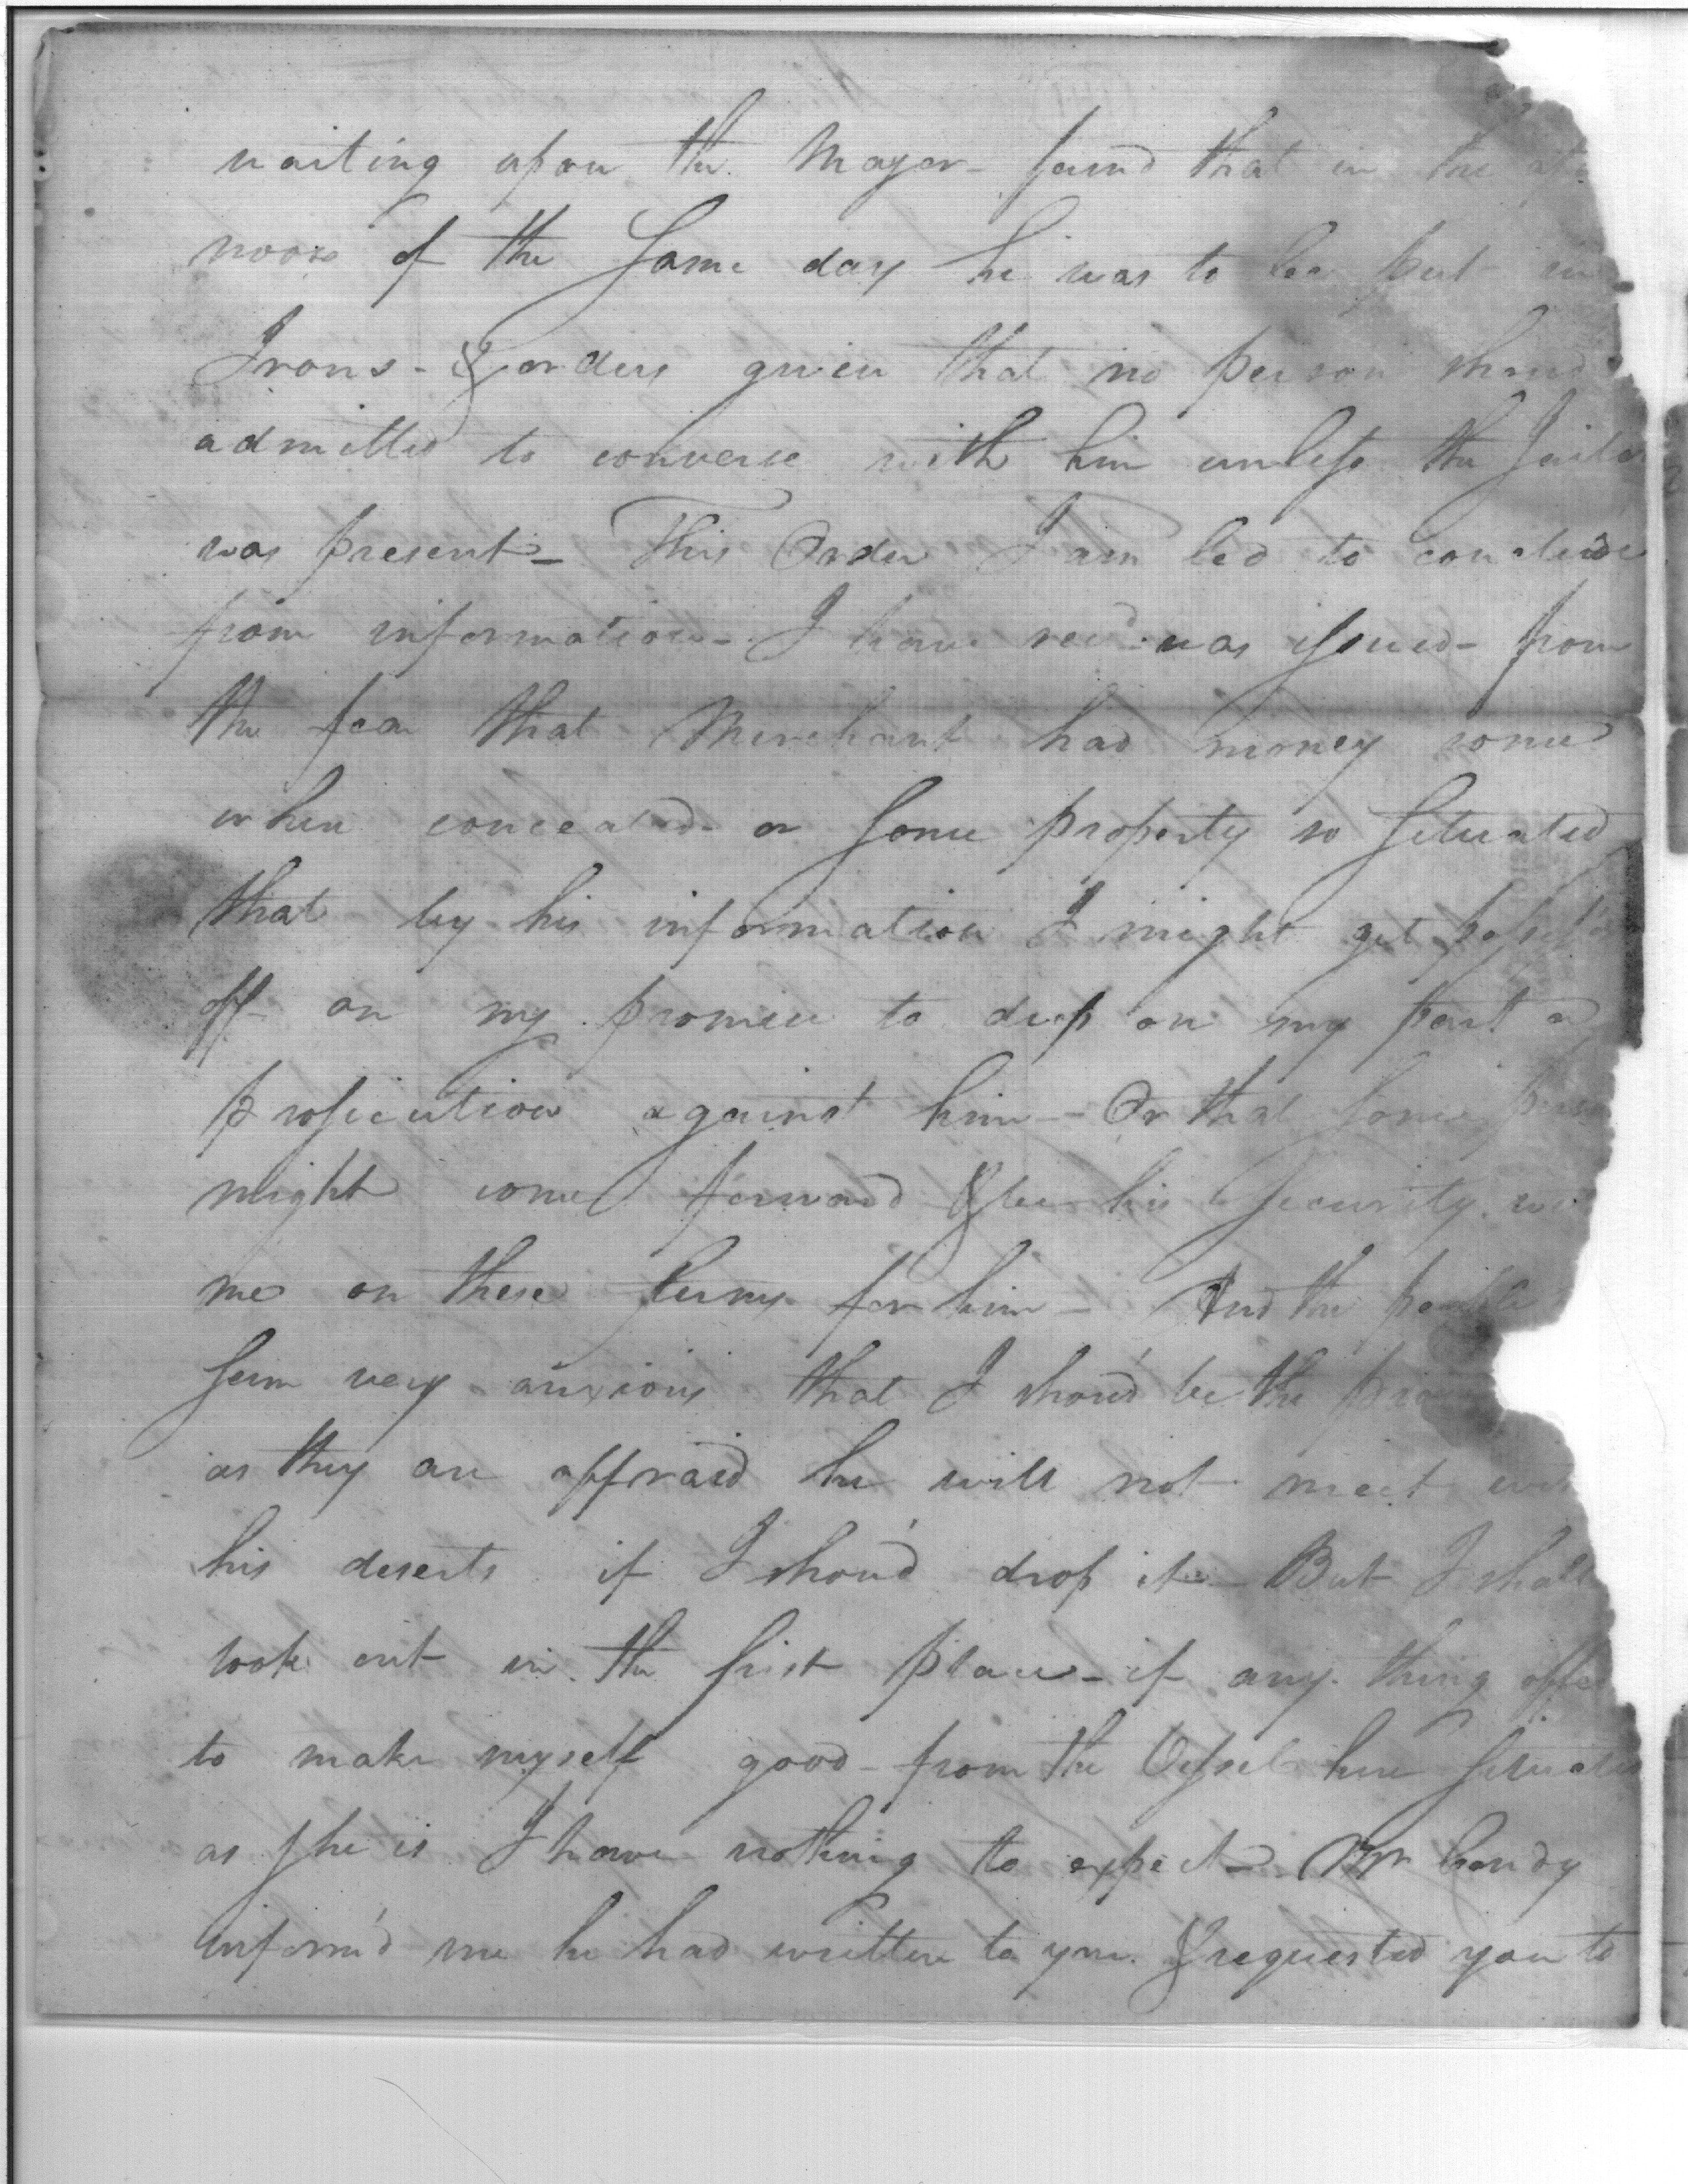 waiting upon the Mayor - found that in the aft
noon of the Same day he was to be put in
Irons - & orders given that no person shoud
admitted to converse with him unless the Jailer
was present - This Order I am led to conclude
from information - I have recd. was issued - from
the fear that Merchant had money some
where concealed - or Some property so Situated
that by his information I might get possess'd
off on my promise to drop on my part a
prosecution against him - Or that Some person
might come forward & be his Security wi
me on these terms for him - And the people
Seem very anxious that I shou'd be the
as they are affraid he will not meet wi
his deserts if I shou'd drop it - But I shall
look out in the first place - if any thing offer
to make myself good - from the Vessel here Situated
as She is I have nothing to expect - Mr
inform'd me he had written to you & requested you to